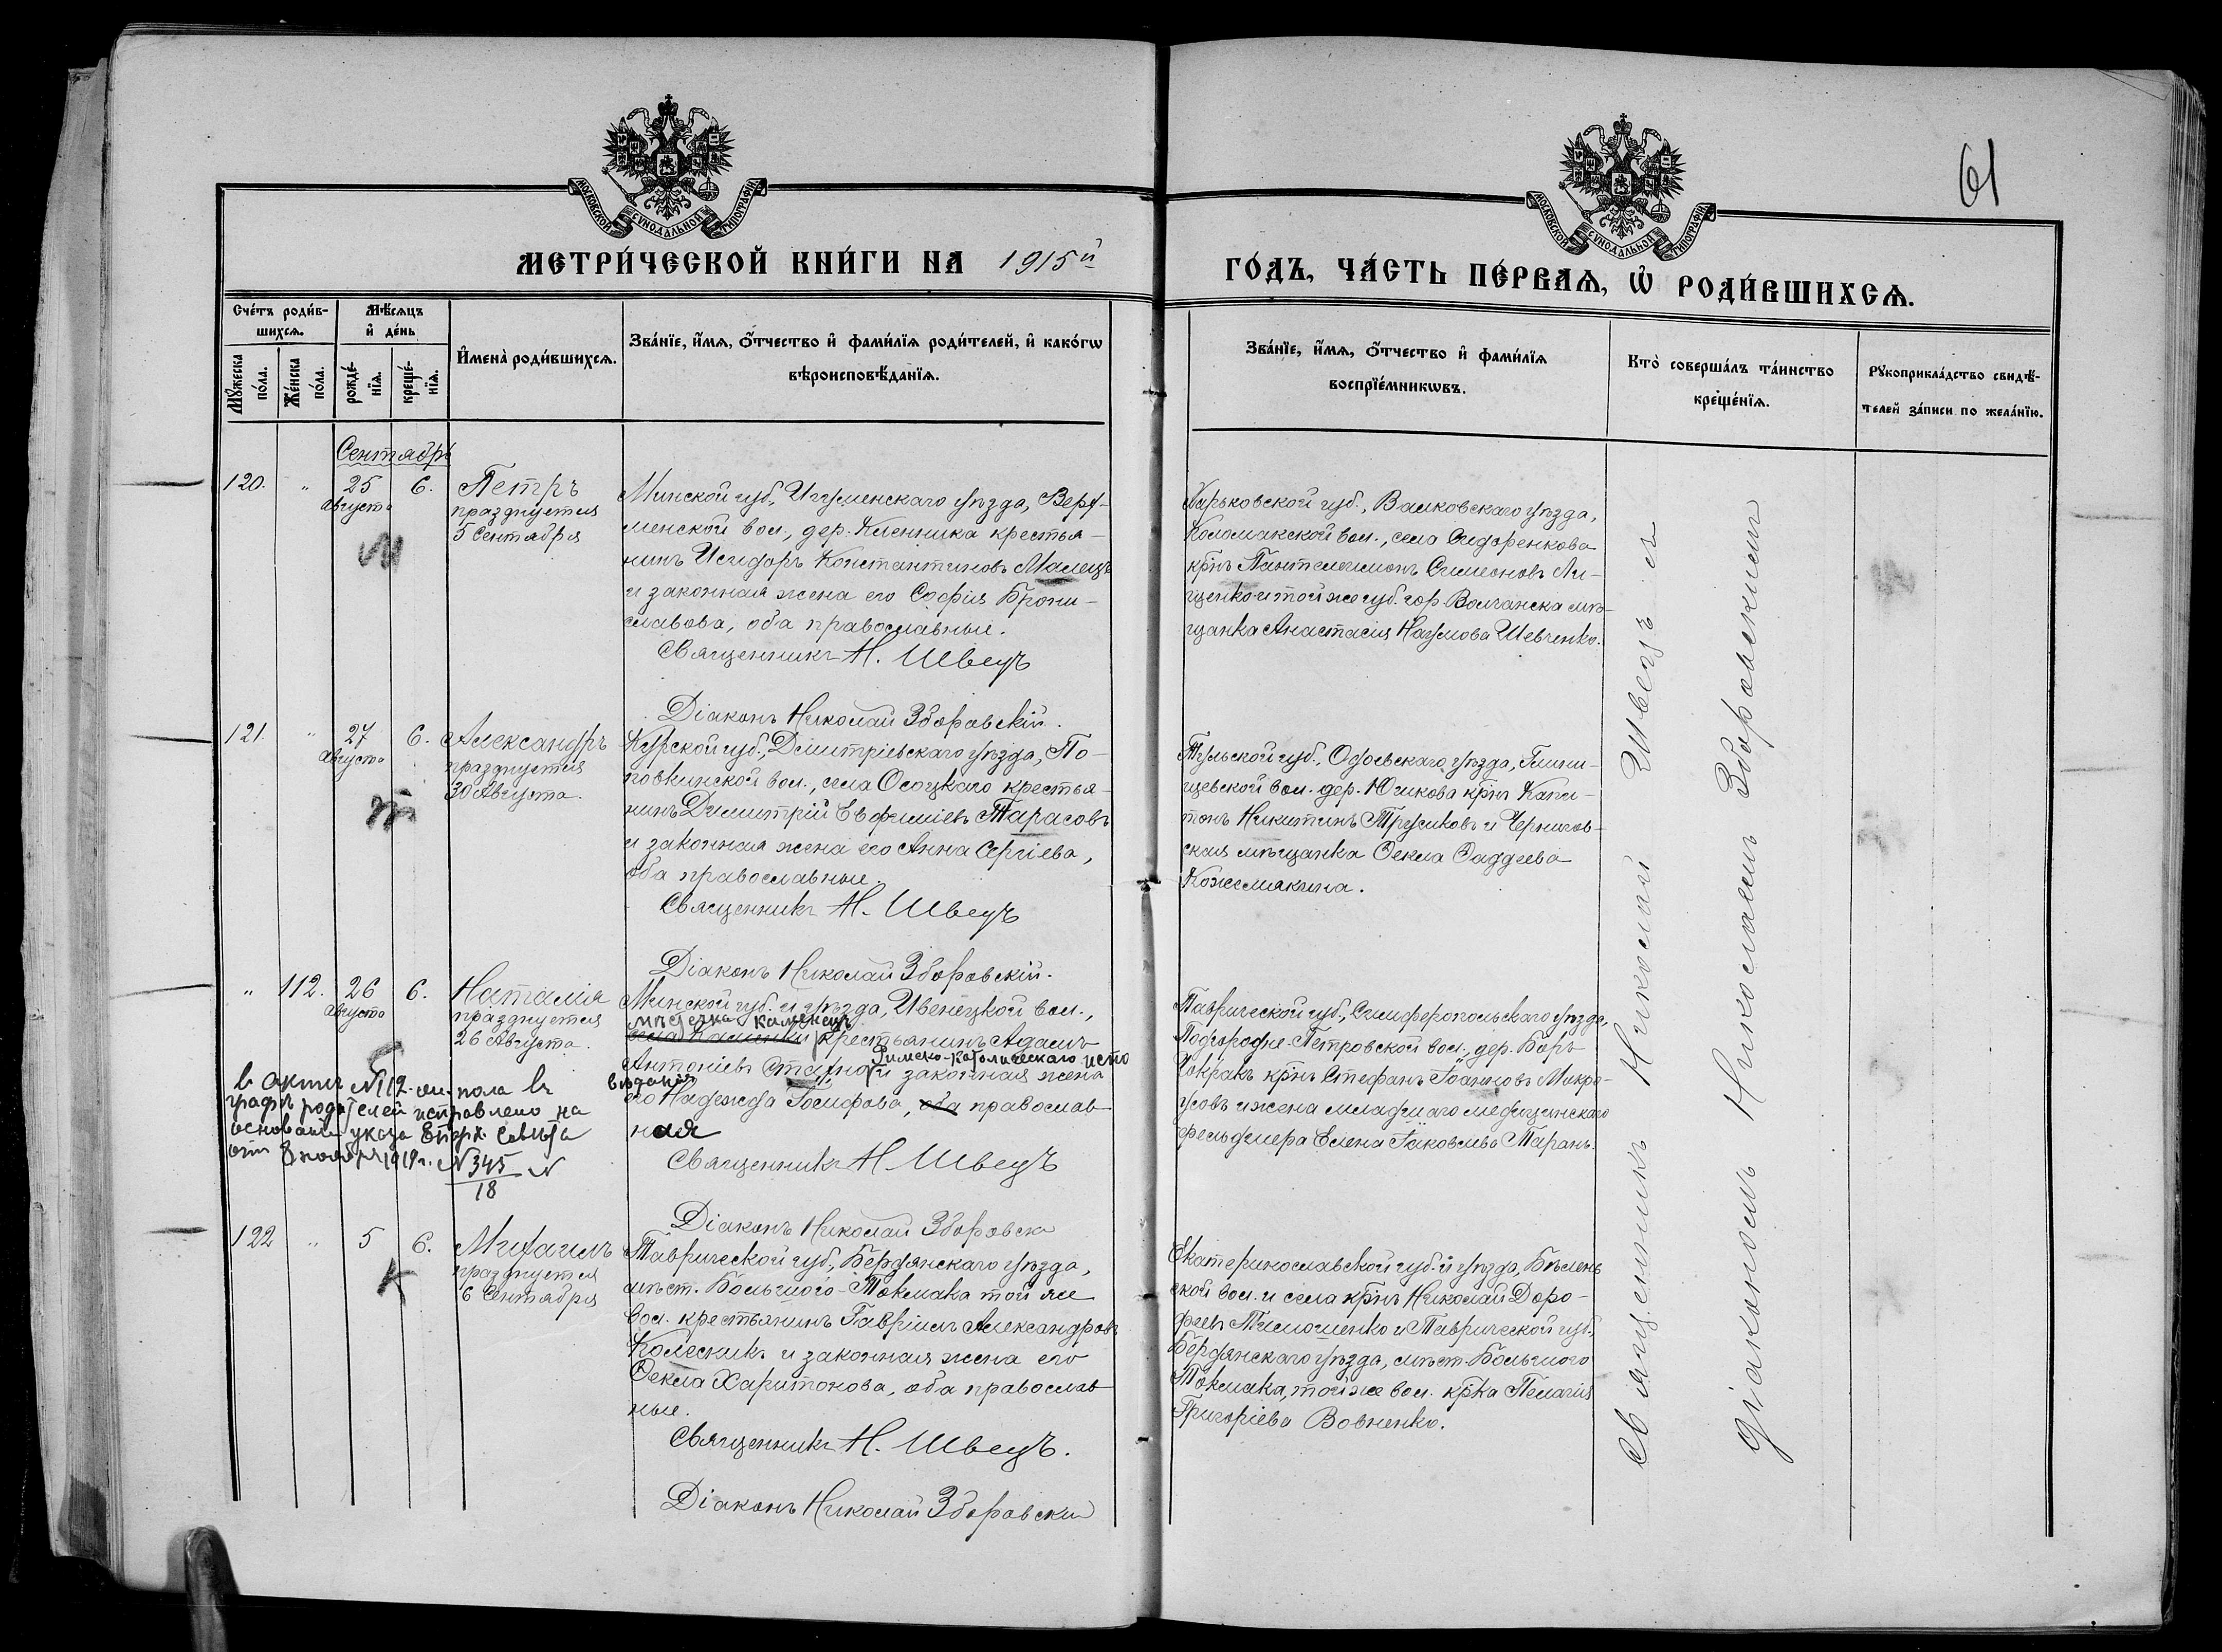 61
МОСКОВСКОЙ СѴНОДАЛЬНОЙ ТИПОГРАФІИ
МОСКОВСКОЙ СѴНОДАЛЬНОЙ ТИПОГРАФІИ
МЕТРИ́ЧЕСКОЙ КНИ́ГИ НА 1915й
ГО́ДЪ, ЧА́СТЬ ПЕ́РВАѦ, Ѡ҆ РОДИ́ВШИХСѦ.
Сче́тъ роди́в-
шихсѧ.
Мꙋ́жеска по́ла.
Же́нска по́ла.
Мѣ́сѧцъ
и҆ де́нь
рожде́-
нїѧ.
креще́-
нїѧ.
И҆мена̀ роди́вшихсѧ.
Зва́нїе, и҆́мѧ, ѻ҆́тчество и҆ фами́лїѧ роди́телей, и҆ како́гѡ
вѣроисповѣ́данїѧ.
Зва́нїе, и҆́мѧ, ѻ҆́тчество и҆ фами́лїѧ
воспрїе́мникѡвъ.
Кто̀ соверша́лъ та́инство
креще́нїѧ.
Рꙋкоприкла́дство свидѣ́-
телей за́писи по жела́нїю.
Сентябрь
120. " 25 августа 6.
Петръ
празднуется
5 Сентября
Минской губ., Игуменскаго уѣзда, Верх-
менской вол., дер. Кленника крестья-
нинъ Исидоръ Константиновъ Малецъ
и законная жена его Софія Брони-
славова, оба православные.
Священникъ Н. Швецъ
Діаконъ Николай Зборовскій.
Харьковской губ., Валковскаго уѣзда,
Коломакской вол., села Сидоренкова
крнъ Пантелеимонъ Симеоновъ Ли-
щенко и той же губ. гор. Волчанска мѣ-
щанка Анастасія Наумова Шевченко.
121. " 27 августа 6.
Александръ
празднуется
30 Августа.
Курской губ., Дмитріевскаго уѣзда, По-
повкинской вол., села Осоцкаго крестья-
нинъ Димитрій Евфиміевъ Тарасовъ
и законная жена его Анна Сергіева,
оба православные.
Священникъ Н. Швецъ
Діаконъ Николай Зборовскій.
Тульской губ., Одоевскаго уѣзда,
вол. дер. Юшкова крнъ Капи-
тонъ Никитинъ Трусиковъ и Чернигов-
ская мѣщанка Ѳекла Ѳаддеева
Кожемякина.
" 112. 26 августа 6.
Наталія
празднуется
26 Августа.
Минской губ. и уѣзда, Ивенецкой вол.,
мѣстечка Каменецъ
крестьянинъ Адамъ
Антоніевъ Римско-Католическаго испо
вѣданія и законная жена
его Надежда Іосифова, оба православ
ная
Священникъ Н. Швецъ
Діаконъ Николай Зборовскі
Таврической губ., Симферопольскаго уѣзда,
Подгородне-Петровской вол., дер. Боръ-
Чокракъ крнъ Стефанъ Іоанновъ Мокро-
усовъ и жена младшаго медицинскаго
фельдшера Елена Іаковлева Таранъ.
въ актѣ №112 жен. пола въ
графѣ родителей исправлено на
основаніи указа Епарх. Совѣта
отъ 8 ноября 1919 г. №345
18
122 " 5 6.
Михаилъ
празднуется
6 Сентября
Таврической губ., Бердянскаго уѣзда,
мѣст. Большого-Токмака той же
вол. крестьянинъ Гавріилъ Александровъ
Колесникъ и законная жена его
Ѳекла Харитонова, оба православ
ные.
Священникъ Н. Швецъ.
Діаконъ Николай Зборовскій
Екатеринославской губ. и уѣзда, Бѣлень
ской вол. и села крнъ Николай Доро-
феевъ Тимошенко и Таврической губ.,
Бердянскаго уѣзда, мѣст. Большого
Токмака, той же вол. крка Пелагія
Григоріева Вовненко.
Священникъ Николай Швецъ съ
діакономъ Николаемъ Зборовскимъ